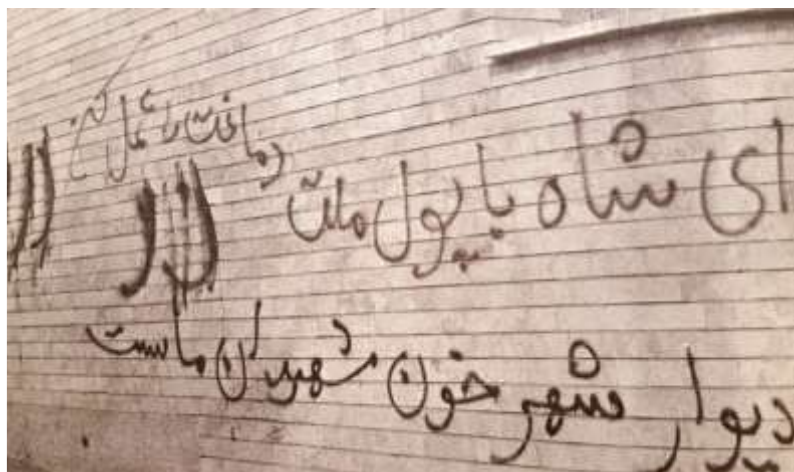 ای شاه با پول ملت
دماغت را عمل کن
دیوار شهر خون شهیدان ماست